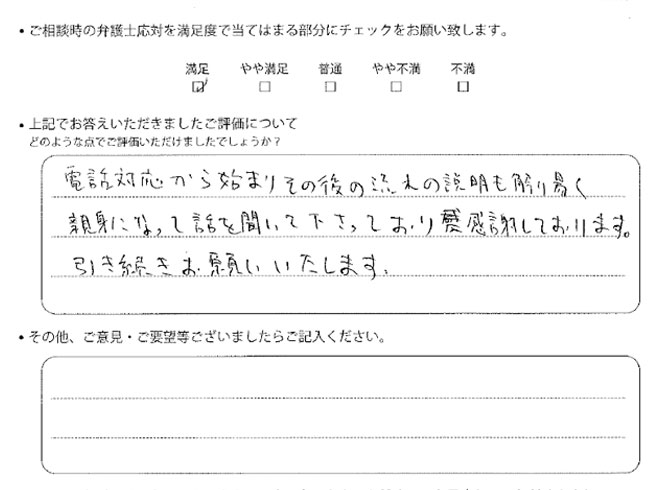 • ご相談時の弁護士応対を満足度で当てはまる部分にチェックをお願い致します。
満足 やや満足 普通 やや不満 不満
☑ □ □ □ □
• 上記でお答えいただきましたご評価について
どのような点でご評価いただけましたでしょうか？
電話対応から始まりその後の流れの説明も解り易く
親身になって話を聞いて下さっており感謝しております。
引き続きお願いいたします。
• その他、ご意見・ご要望等ございましたらご記入ください。